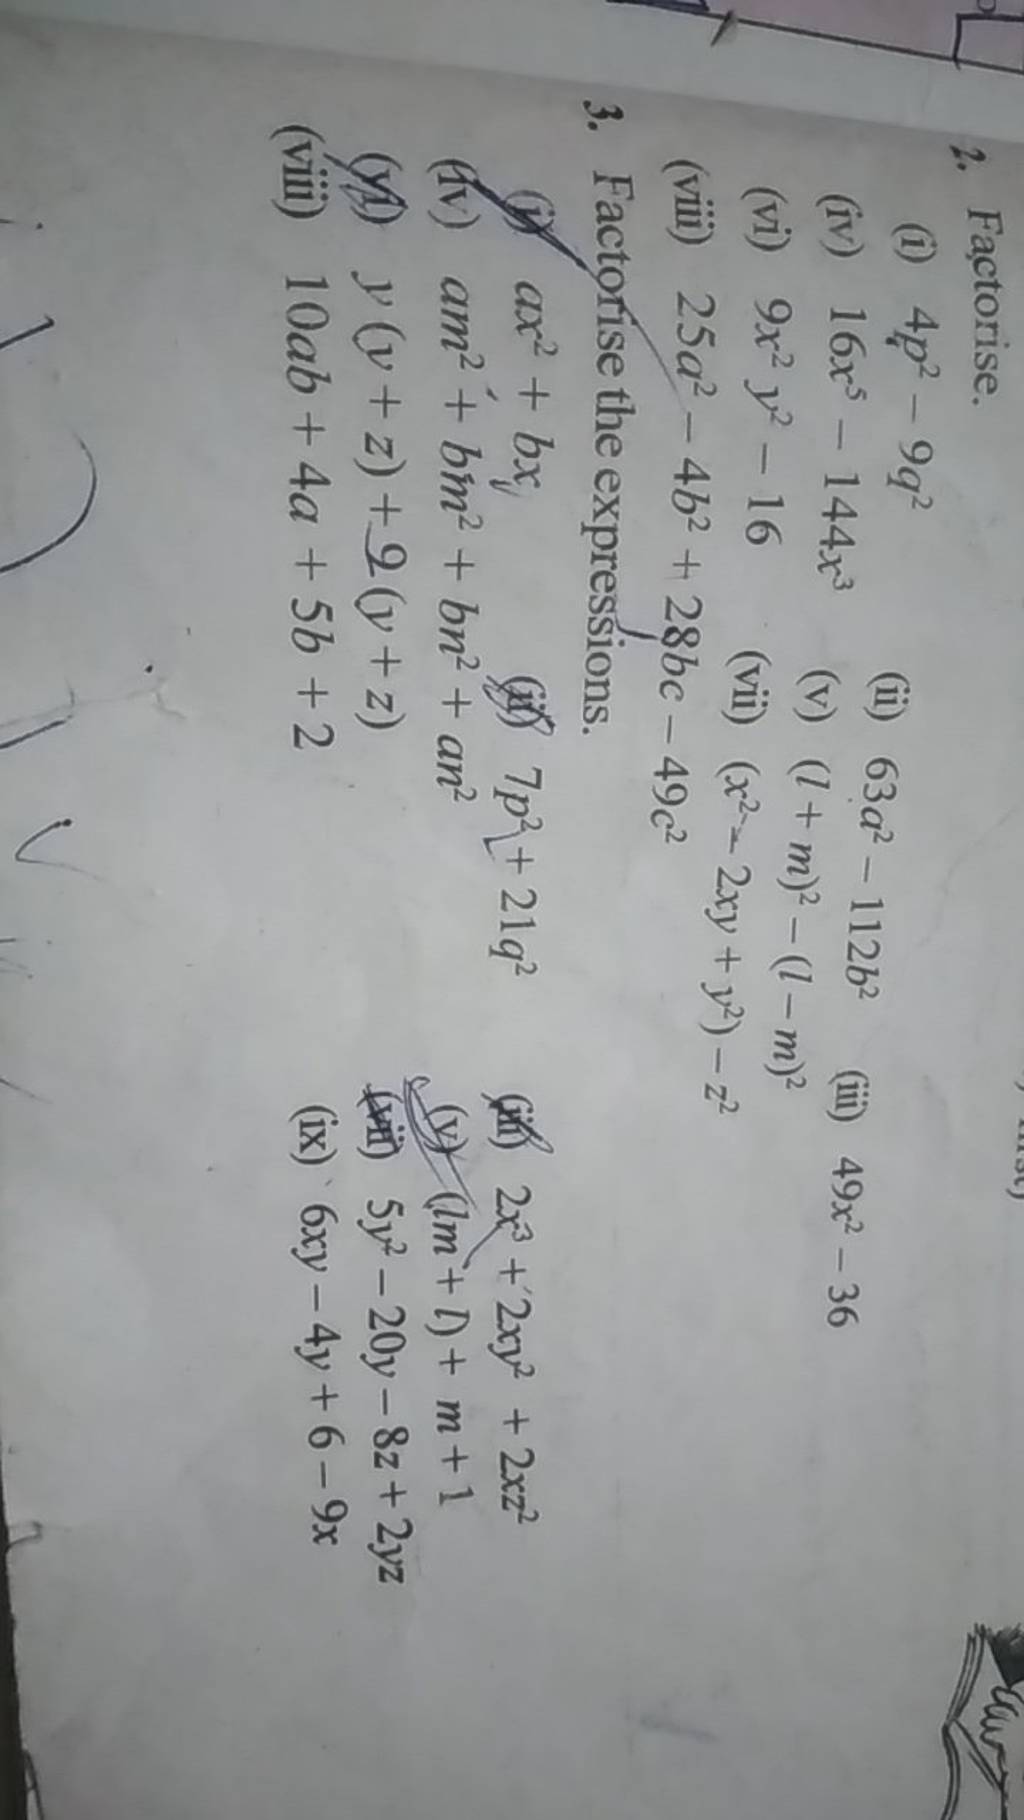 2. Factorise.
(i) 4p² – 9q² (ii) 63a² – 112b² (iii) 49x² – 36
(iv) 16x⁵ – 144x³ (v) (l + m)² – (l – m)²
(vi) 9x² y² – 16 (vii) (x² – 2xy + y²) – z²
(viii) 25a² – 4b² + 28bc – 49c²
3. Factorise the expressions.
(i) ax² + bx (ii) 7p² + 21q² (iii) 2x³ + 2xy² + 2xz²
(iv) am² + bm² + bn² + an² (v) (lm + l) + m + 1
(vi) y (y + z) + 9 (y + z) (vii) 5y² – 20y – 8z + 2yz
(viii) 10ab + 4a + 5b + 2 (ix) 6xy – 4y + 6 – 9x